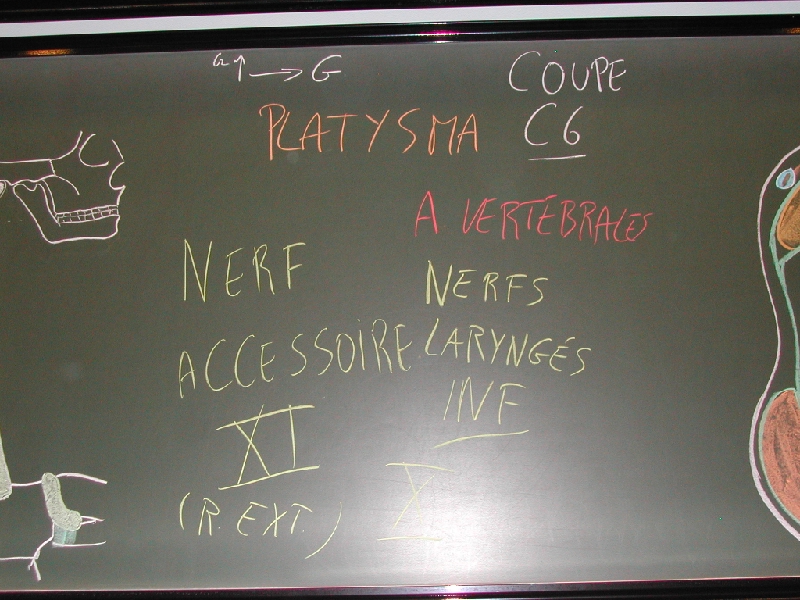 G
COUPE
C6
PLATYSMA
A. VERTÉBRALES
NERF
ACCESSOIRE
XI
(R. EXT.)
NERFS
LARYNGÉS
INF
X